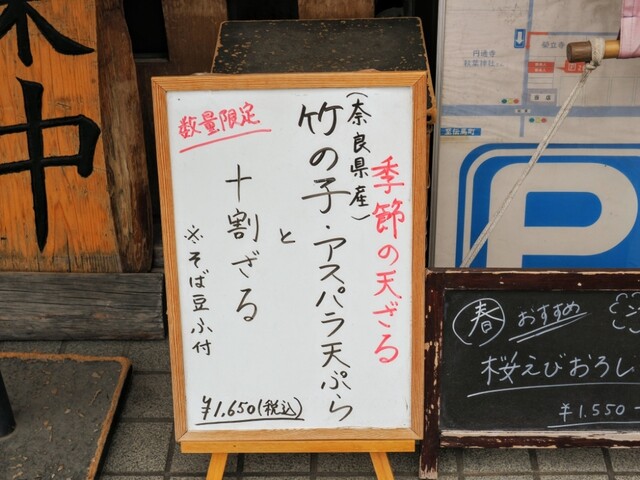 季節の天ざる
(奈良県産)
竹の子・アスパラ天ぷら
と
十割ざる
※そば豆ふ付
数量限定
¥1.650(税込)
中
春 おすすめ
桜えびおろし
¥1.550-
P
至伝馬町